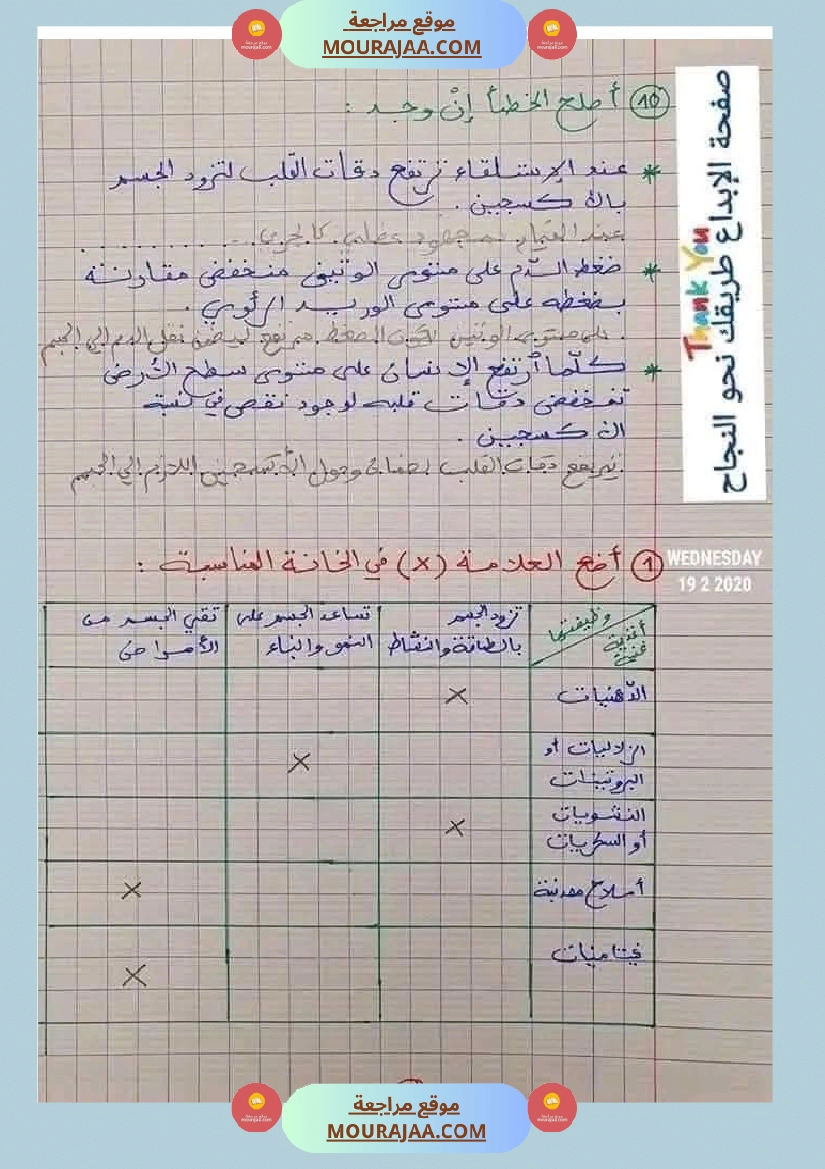 موقع مراجعة
MOURAJAA.COM
صفحة الإبداع طريقك نحو النجاح
Thank You
10 أصلح الخطأ إنْ وجد :
* عند الإستلقاء ترتفع دقات القلب لتزود الجسم
بالأكسجين .
عند القيام بمجهود عضلي كالجري
* ضغط الدّم على مستوى الوتين منخفض مقارنة
بضغطه على مستوى الوريد الرئوي .
على مستوى الوتين يكون الضغط مرتفع ليضمن نقل الدم إلى الجسم
* كلّما ارتفع الإنسان على مستوى سطح الأرض
تنخفض دقات قلبه لوجود نقص في نسبة
الأكسجين .
ترتفع دقات القلب لضمان وصول الأكسجين اللازم إلى الجسم
WEDNESDAY
19 2 2020
1 أضع العلامة (x) في الخانة المناسبة :
وظيفتها أغذية غنية تزود الجسم بالطاقة والنشاط تساعد الجسم على النمو والبناء تقي الجسد من الأمراض
الدّهنيات X
الزلاليات أو البروتينات X
النشويات أو السكريات X
أملاح معدنية X
فيتامينات X
موقع مراجعة
MOURAJAA.COM